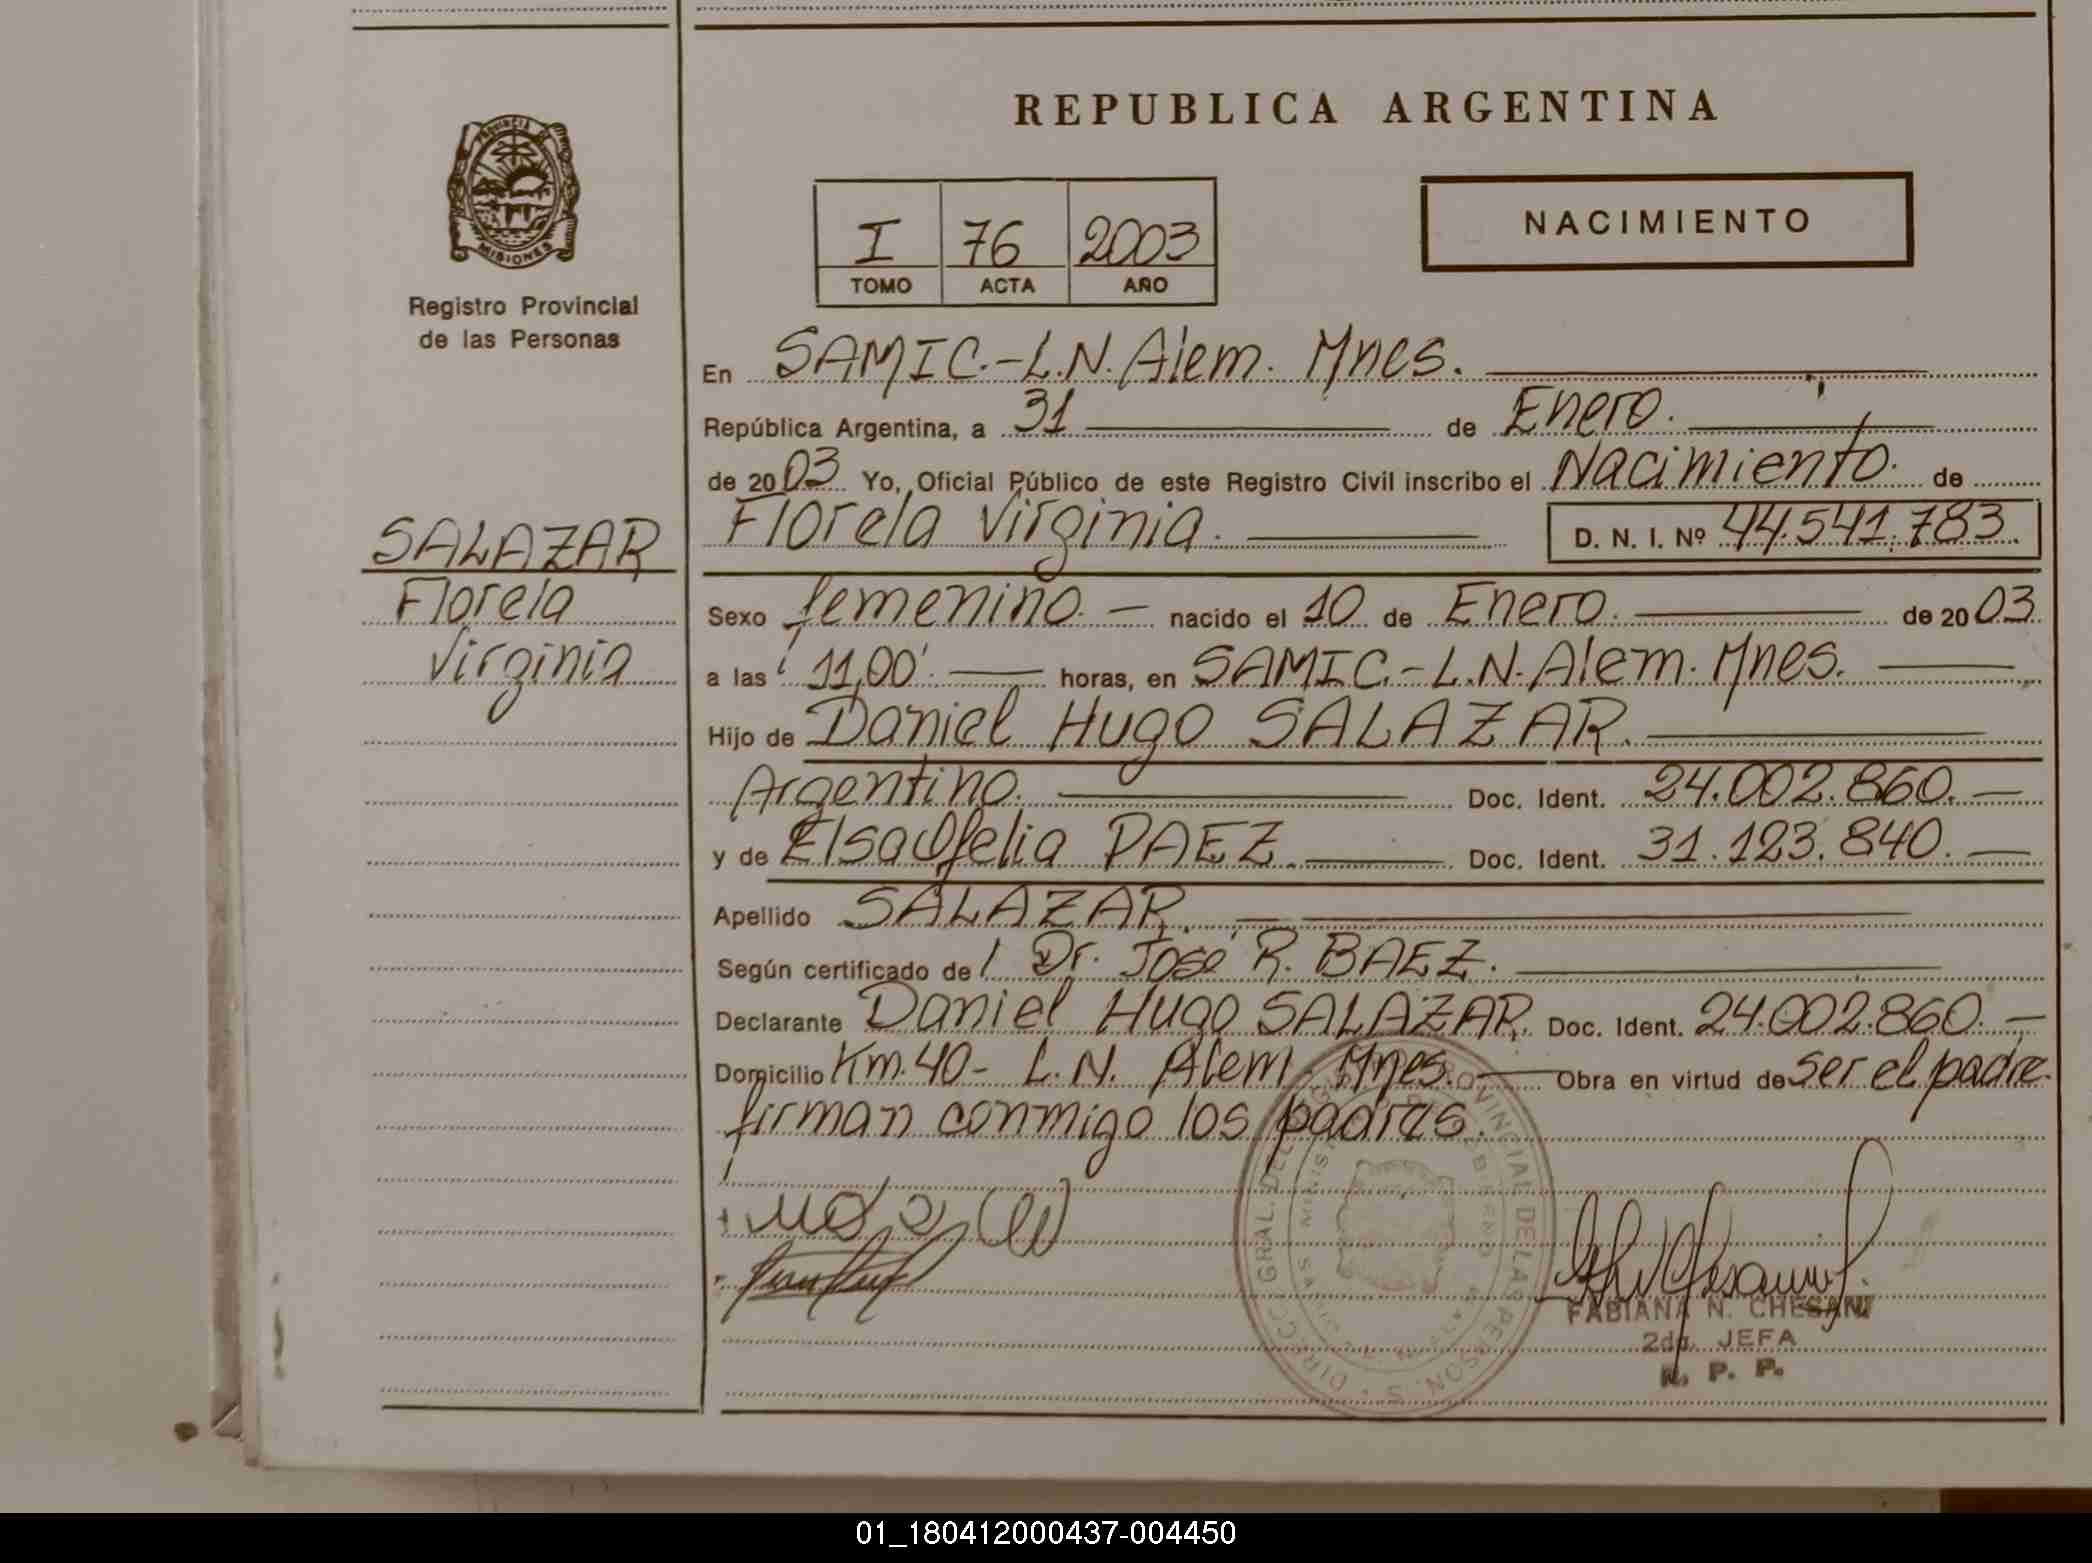 REPUBLICA ARGENTINA
PROVINCIA DE
MISIONES
Registro Provincial
de las Personas
I 76 2003
TOMO ACTA AÑO
NACIMIENTO
En SAMIC.-L.N. Alem. Mnes.
República Argentina, a 31 de Enero.
de 2003 Yo, Oficial Público de este Registro Civil inscribo el Nacimiento. de
Florela Virginia. D. N. I. Nº 44.541.783.
SALAZAR
Florela
Virginia
Sexo femenino. — nacido el 10 de Enero. de 2003
a las 11,00'. horas, en SAMIC.-L.N. Alem. Mnes.
Hijo de Daniel Hugo SALAZAR.
Argentino. Doc. Ident. 24.002.860. —
y de Elsa Ofelia PAEZ. Doc. Ident. 31.123.840. —
Apellido SALAZAR.
Según certificado de Dr. José R. BAEZ.
Declarante Daniel Hugo SALAZAR. Doc. Ident. 24.002.860. —
Domicilio Km. 40- L.N. Alem. Mnes. Obra en virtud de ser el padre.
firman conmigo los padres.
DIRECC. GRAL. DEL REGISTRO PROVINCIAL DE LAS PERSONAS
FABIANA N. CHESANI
2da. JEFA
R. P. P.
01_180412000437-004450